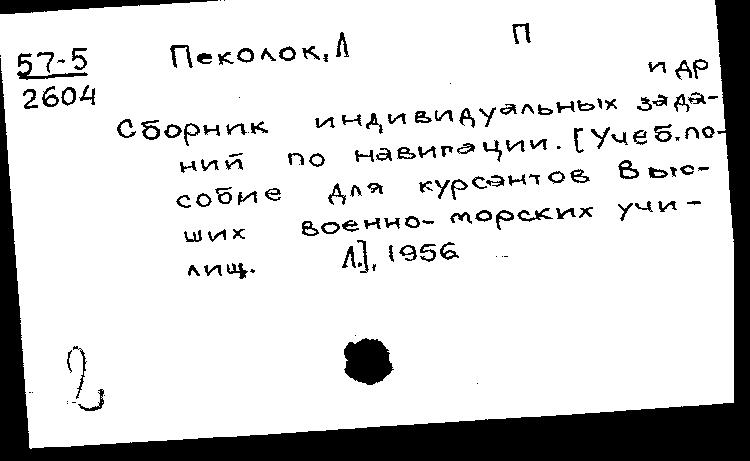 57-5 Пеколок, Л П
2604 и др
Сборник индивидуальных зада-
ний по навигации. [Учеб. по-
собие для курсантов Выс-
ших военно-морских учи-
лищ. Л.], 1956
2